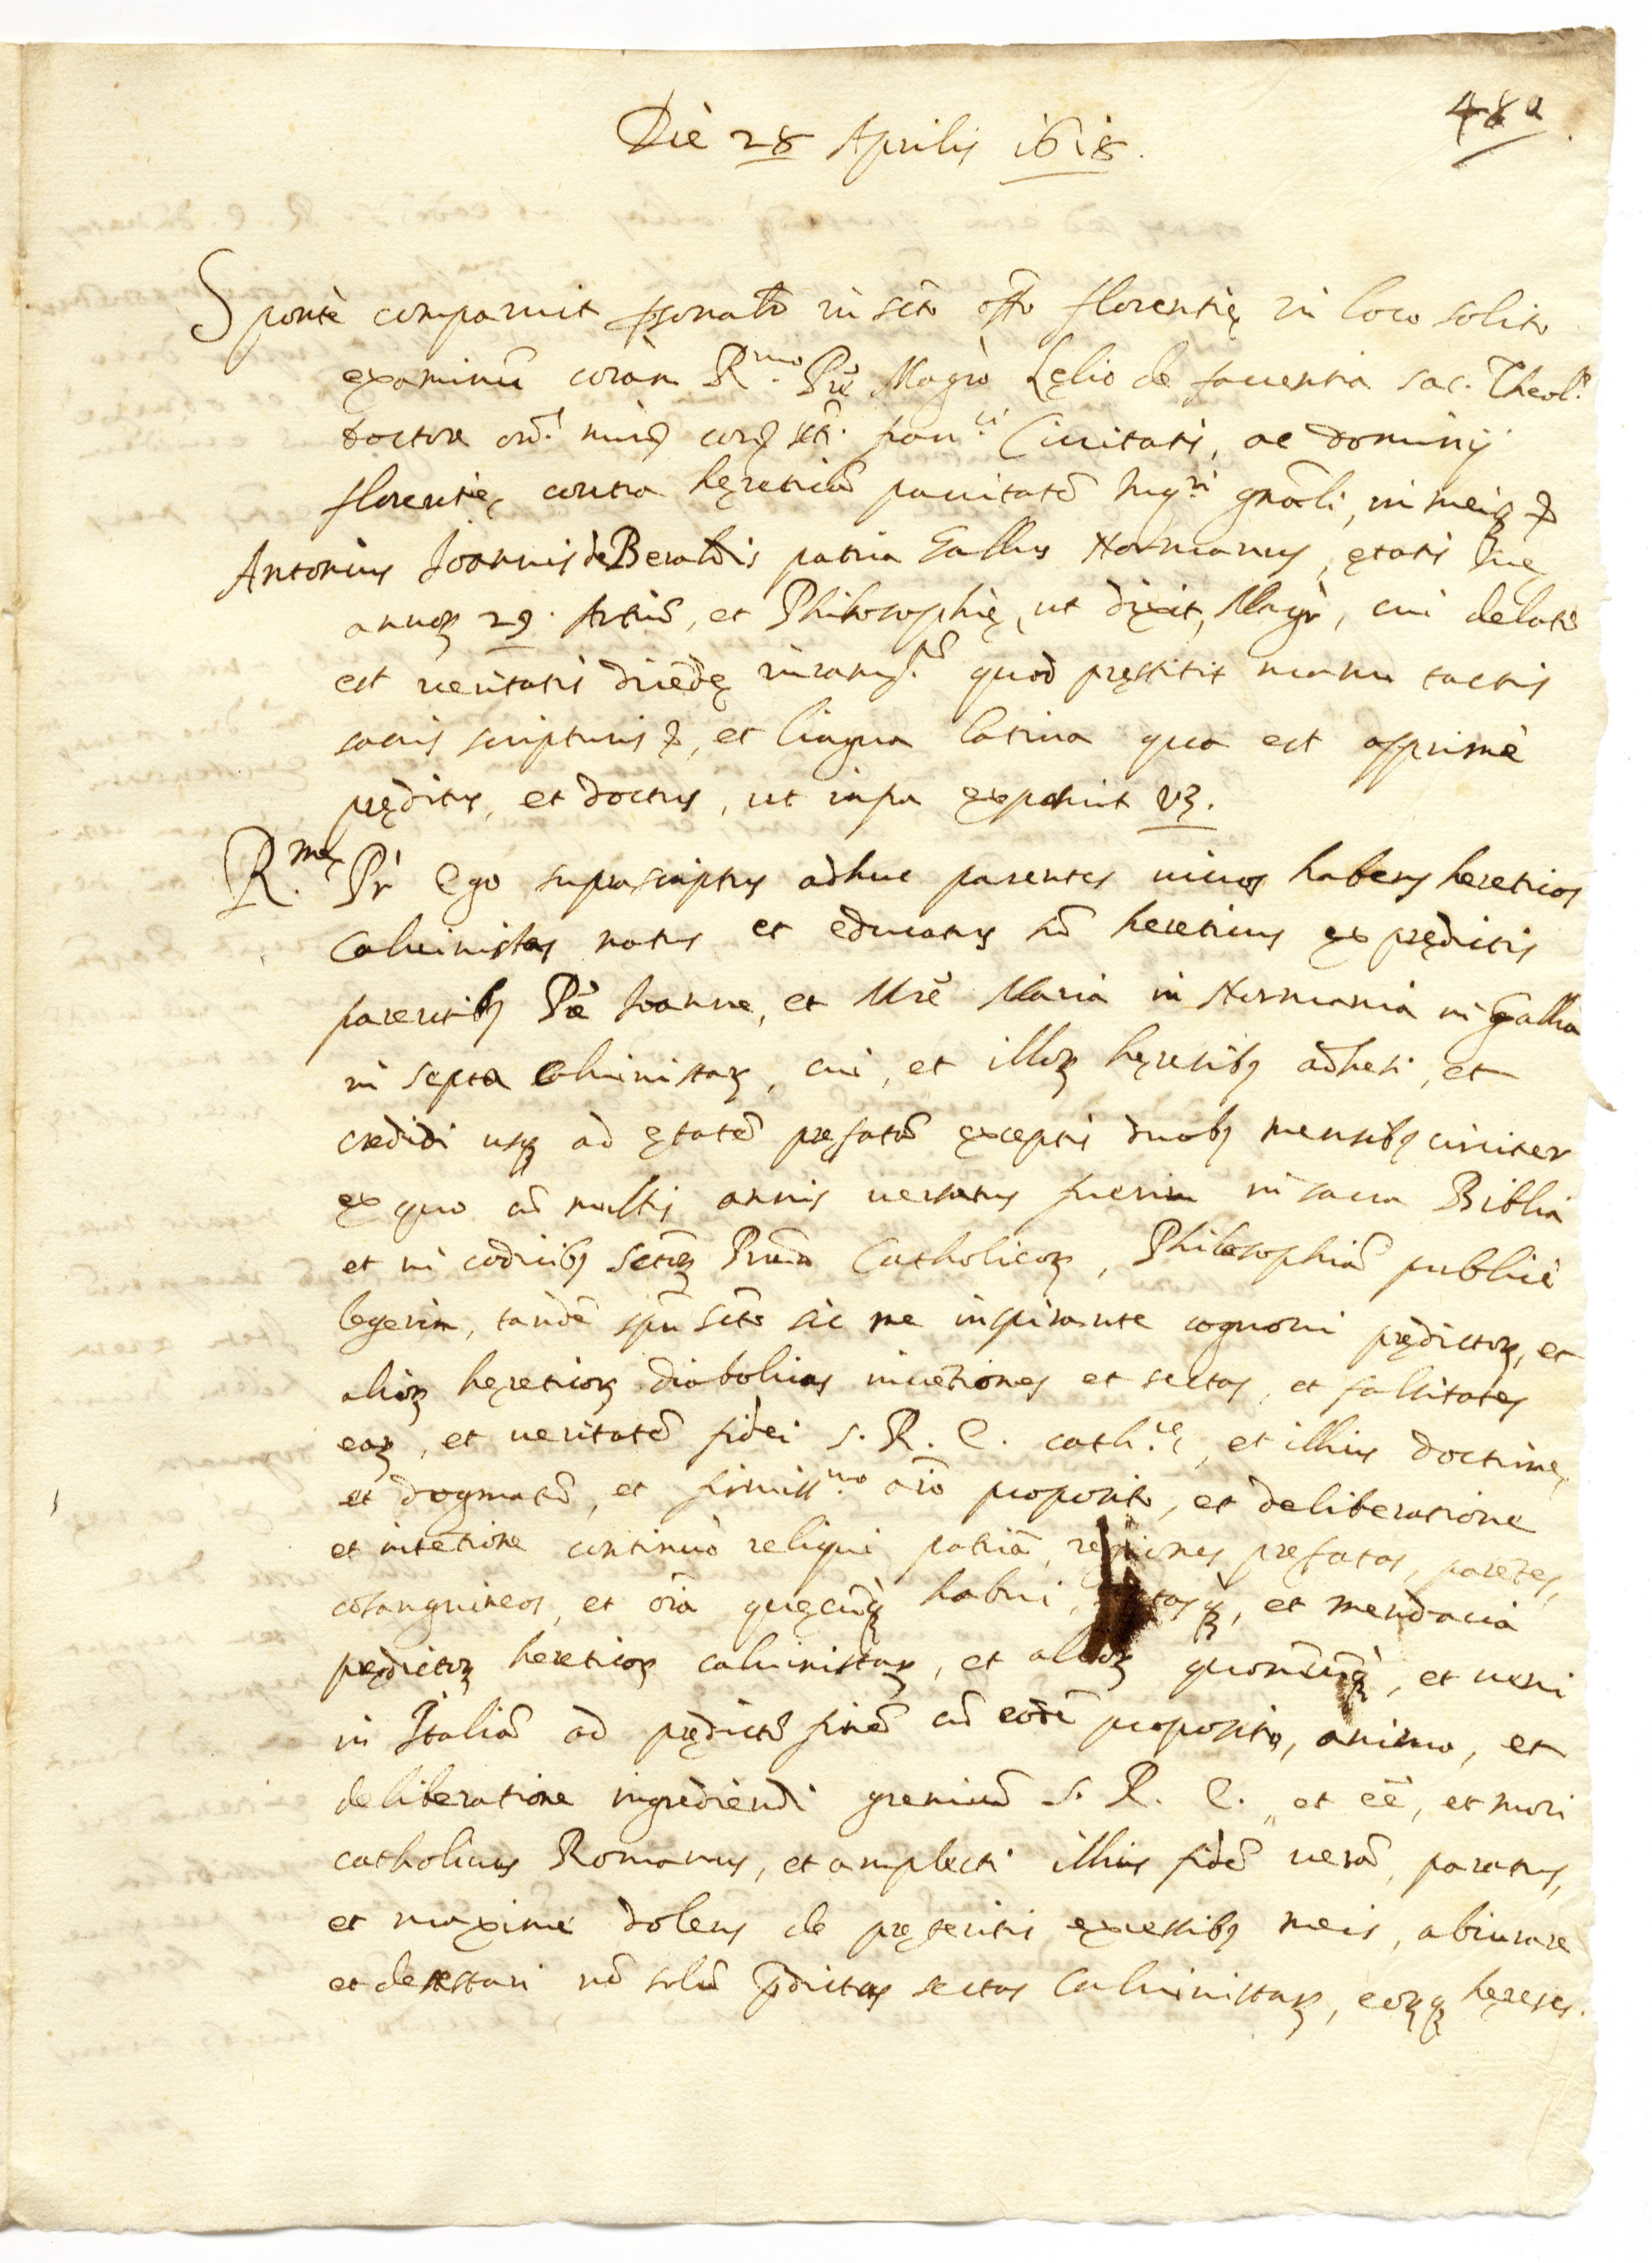 48a
Diè 28 Aprilis 1618.
Spontè comparuit psonalr in scto offo florentię in loco solito
examinũ coràm R.mo Prẽ Magrò Lęlio de fauentia sac. Theol.ę
doctore ord. miñ conv sti. fran.ci Ciuitatis, ac dominij
florentię contra hęreticã prauitatẽ Inq.ri gñali, in meiq
Antonius Joannis de Beraldis patria Gallus Normanus, ętatis suę
annoꝝ 29. Artiũ, et Philosophię, ut dixit, Magr, cui delatũ
est ueritatis dicẽdę iuram.tũ quod pręstitit manu tactis
sacris scripturis, et lingua latina qua est apprimè
pręditus, et doctus, ut infra exposuit vꝫ.
R.me Pr Ego suprascriptus adhuc parentes uiuos habens hereticos
Caluinistas natus et educatus sũ hereticus ex prędictis
parentibꝫ Prẽ Joanne, et Mrẽ Maria in Normania in Gallia
in septa caluinistaꝝ, cui, et illoꝝ hęresibꝫ adhesi, et
credidi usqꝫ ad ętatẽ prefatã exceptis duobꝫ mensibꝫ circiter
ex quo cũ multis annis uersatus fuerim in sacra Biblia
et in codicibꝫ sctoꝝ Prum Catholicoꝝ, Philosophiã publicè
legerim, tandẽ spũ scto sic me inspirante cognoui prędictoꝝ, et
alioꝝ hęreticoꝝ diabolicas inuẽtiones et sectas, et falsitates
eaꝝ, et ueritatẽ fidei S. R. E. cath.cę, et illius doctrinę,
et dogmatũ, et firmiss.mo aĩo proposito, et deliberatione
et intẽtione continuò reliqui patriã, regiones prefatas, parẽtes,
cõsanguineos, et oĩa quęcũqꝫ habui, et mendacia
prędictoꝝ hereticoꝝ caluinistaꝝ, et alioꝝ quorũcũqꝫ, et ueni
in Italiã ad prędictũ finẽ cũ eodẽ proposito, animo, et
deliberatione ingrediendi gremiũ S. R. E., et eẽ, et mori
catholicus Romanus, et amplecti illius fidẽ uerã, paratus,
et maximè dolens de pręteritis excessibꝫ meis, abiurare
et detestari nõ solũ p̃dictas sectas Caluinistaꝝ, eoꝝqꝫ hęreses.